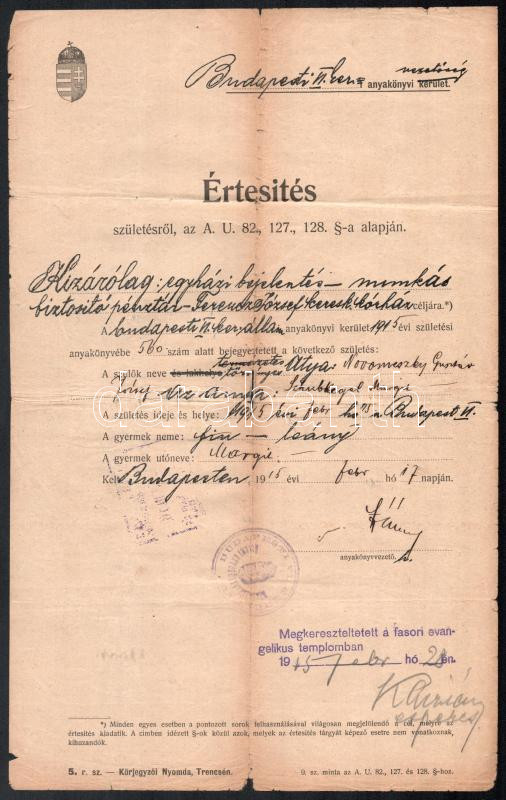 Budapesti VI. ker. vezetőség
anyakönyvi kerület.
Értesités
születésről, az A. U. 82., 127., 128. §-a alapján.
Kizárólag: egyházi bejelentés – munkás
biztositó pénztár – Ferencz József keresk. kórház céljára.*)
A budapesti VI. ker. állam anyakönyvi kerület 1915 évi születési
anyakönyvébe 560 szám alatt bejegyeztetett a következő születés:
A szülők neve és lakhelye: Atya: Gusztáv
József
A szülktés ideje és helye: 1915 évi febr. hó Budapest VI.
A gyermek neme: fiu – leány
A gyermek utóneve: Margit
Kelt Budapesten 1915 évi febr hó 17 napján.
anyakönyvvezető.
Megkereszteltetett a fasori evan-
gelikus templomban
1915 febr hó 28 én.
*) Minden egyes esetben a pontozott sorok felhasználásával világosan megjelölendő a cél, melyre az
értesités kiadatik. A cimben idézett §-ok közül azok, melyek az értesités tárgyát képező esetre nem vonatkoznak,
kihuzandók.
5. r. sz. — Körjegyzői Nyomda, Trencsén.
9. sz. minta az A. U. 82., 127. és 128. §-hoz.
darabanth